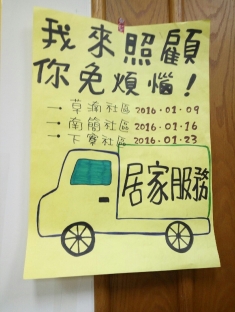 我來照顧
你免煩惱！
→草湳社區 2016.01.09
→南簡社區 2016.01.16
→下寮社區 2016.01.23
居家服務